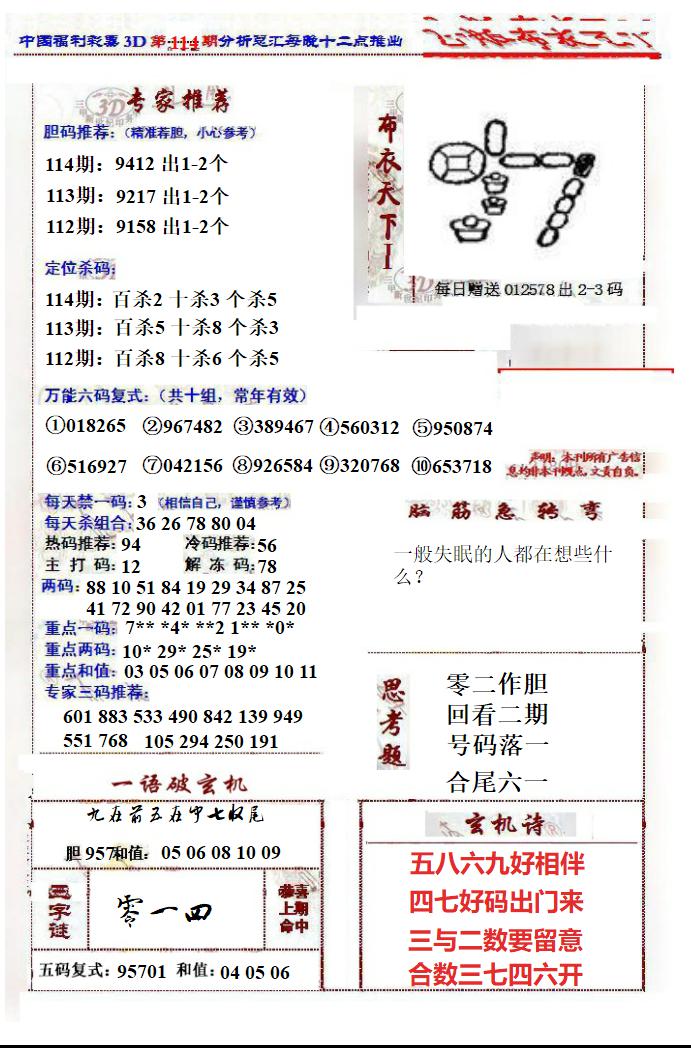 中国福利彩票3D 第114期分析总汇每晚十二点推出
专家推荐
胆码推荐：（精准荐胆，小心参考）
114期：9412 出1-2个
113期：9217 出1-2个
112期：9158 出1-2个
定位杀码：
114期：百杀2 十杀3 个杀5
113期：百杀5 十杀8 个杀3
112期：百杀8 十杀6 个杀5
布衣天下I
每日赠送012578出2-3码
万能六码复式：（共十组，常年有效）
①018265 ②967482 ③389467 ④560312 ⑤950874
⑥516927 ⑦042156 ⑧926584 ⑨320768 ⑩653718
声明：本刊所有广告信
息均非本刊观点，文责自负。
每天禁一码：3 （相信自己，谨慎参考）
每天杀组合：36 26 78 80 04
热码推荐：94 冷码推荐：56
主打码：12 解冻码：78
两码：88 10 51 84 19 29 34 87 25
41 72 90 42 01 77 23 45 20
重点一码：7** *4* **2 1** *0*
重点两码：10* 29* 25* 19*
重点和值：03 05 06 07 08 09 10 11
专家三码推荐：
601 883 533 490 842 139 949
551 768 105 294 250 191
脑筋急转弯
一般失眠的人都在想些什
么？
思考题
零二作胆
回看二期
号码落一
合尾六一
一语破玄机
九在前五在中七收尾
胆957和值：05 06 08 10 09
零一四
恭喜
上期
命中
五码复式：95701 和值：04 05 06
玄机诗
五八六九好相伴
四七好码出门来
三与二数要留意
合数三七四六开